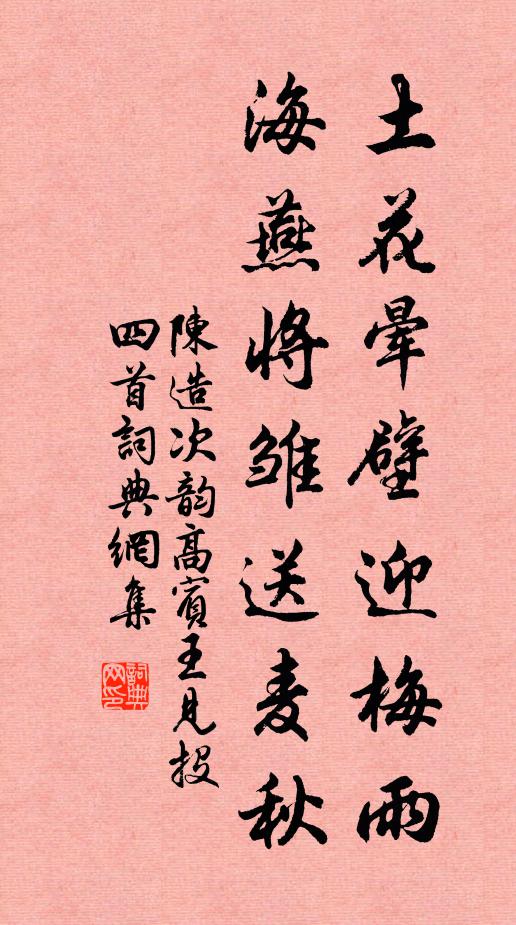 土花暈壁迎梅雨
海燕將雏送麦秋
陳造次韵高賓王見投
四首詞典網集
詞典網印